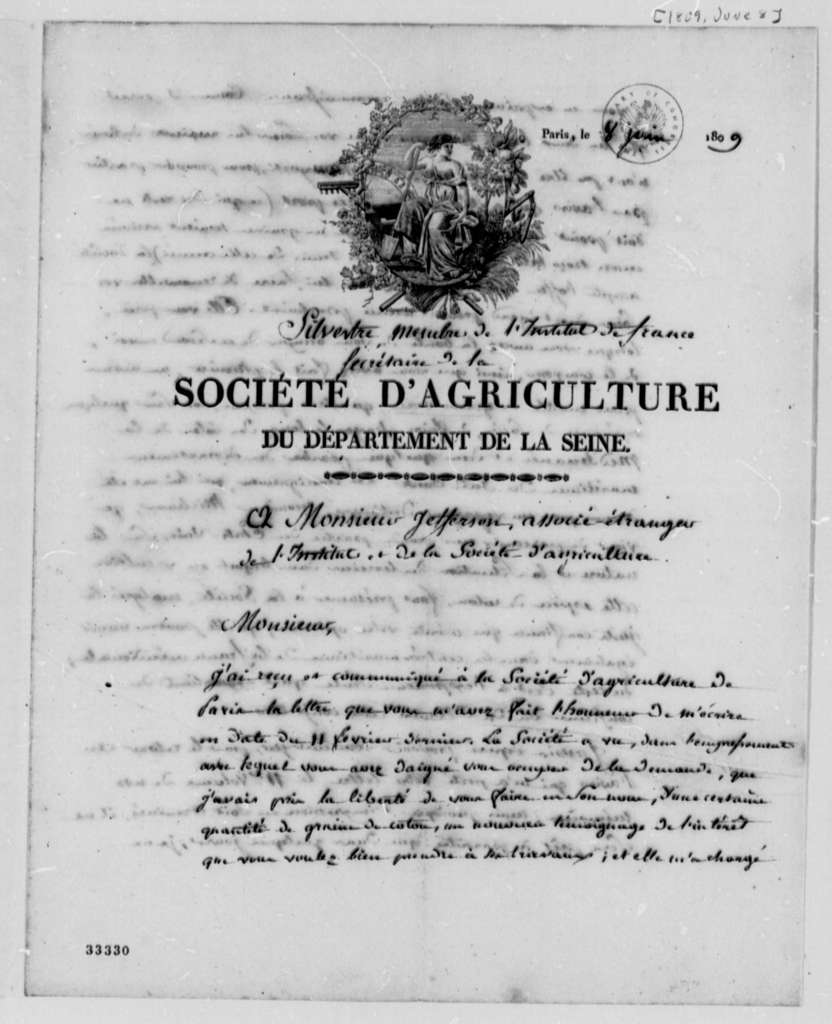 [1809, June 8]
LIBRARY OF CONGRESS
Paris, le 8 juin 1809
Silvestre, membre de l'Institut de france
secrétaire de la
SOCIÉTÉ D'AGRICULTURE
DU DÉPARTEMENT DE LA SEINE.
A Monsieur Jefferson, associé étranger
de l'Institut et de la Société d'agriculture.
Monsieur,
J'ai reçu et communiqué à la Société d'agriculture de
Paris la lettre que vous m'avez fait l'honneur de m'écrire
en date du 11 février dernier. La Société a vu, dans l'empressement
avec lequel vous avez daigné vous occuper de la demande, que
j'avais pris la liberté de vous faire en son nom, d'une certaine
quantité de graine de coton, un nouveau témoignage de l'intérêt
que vous voulez bien prendre à ses travaux; et elle m'a chargé
33330